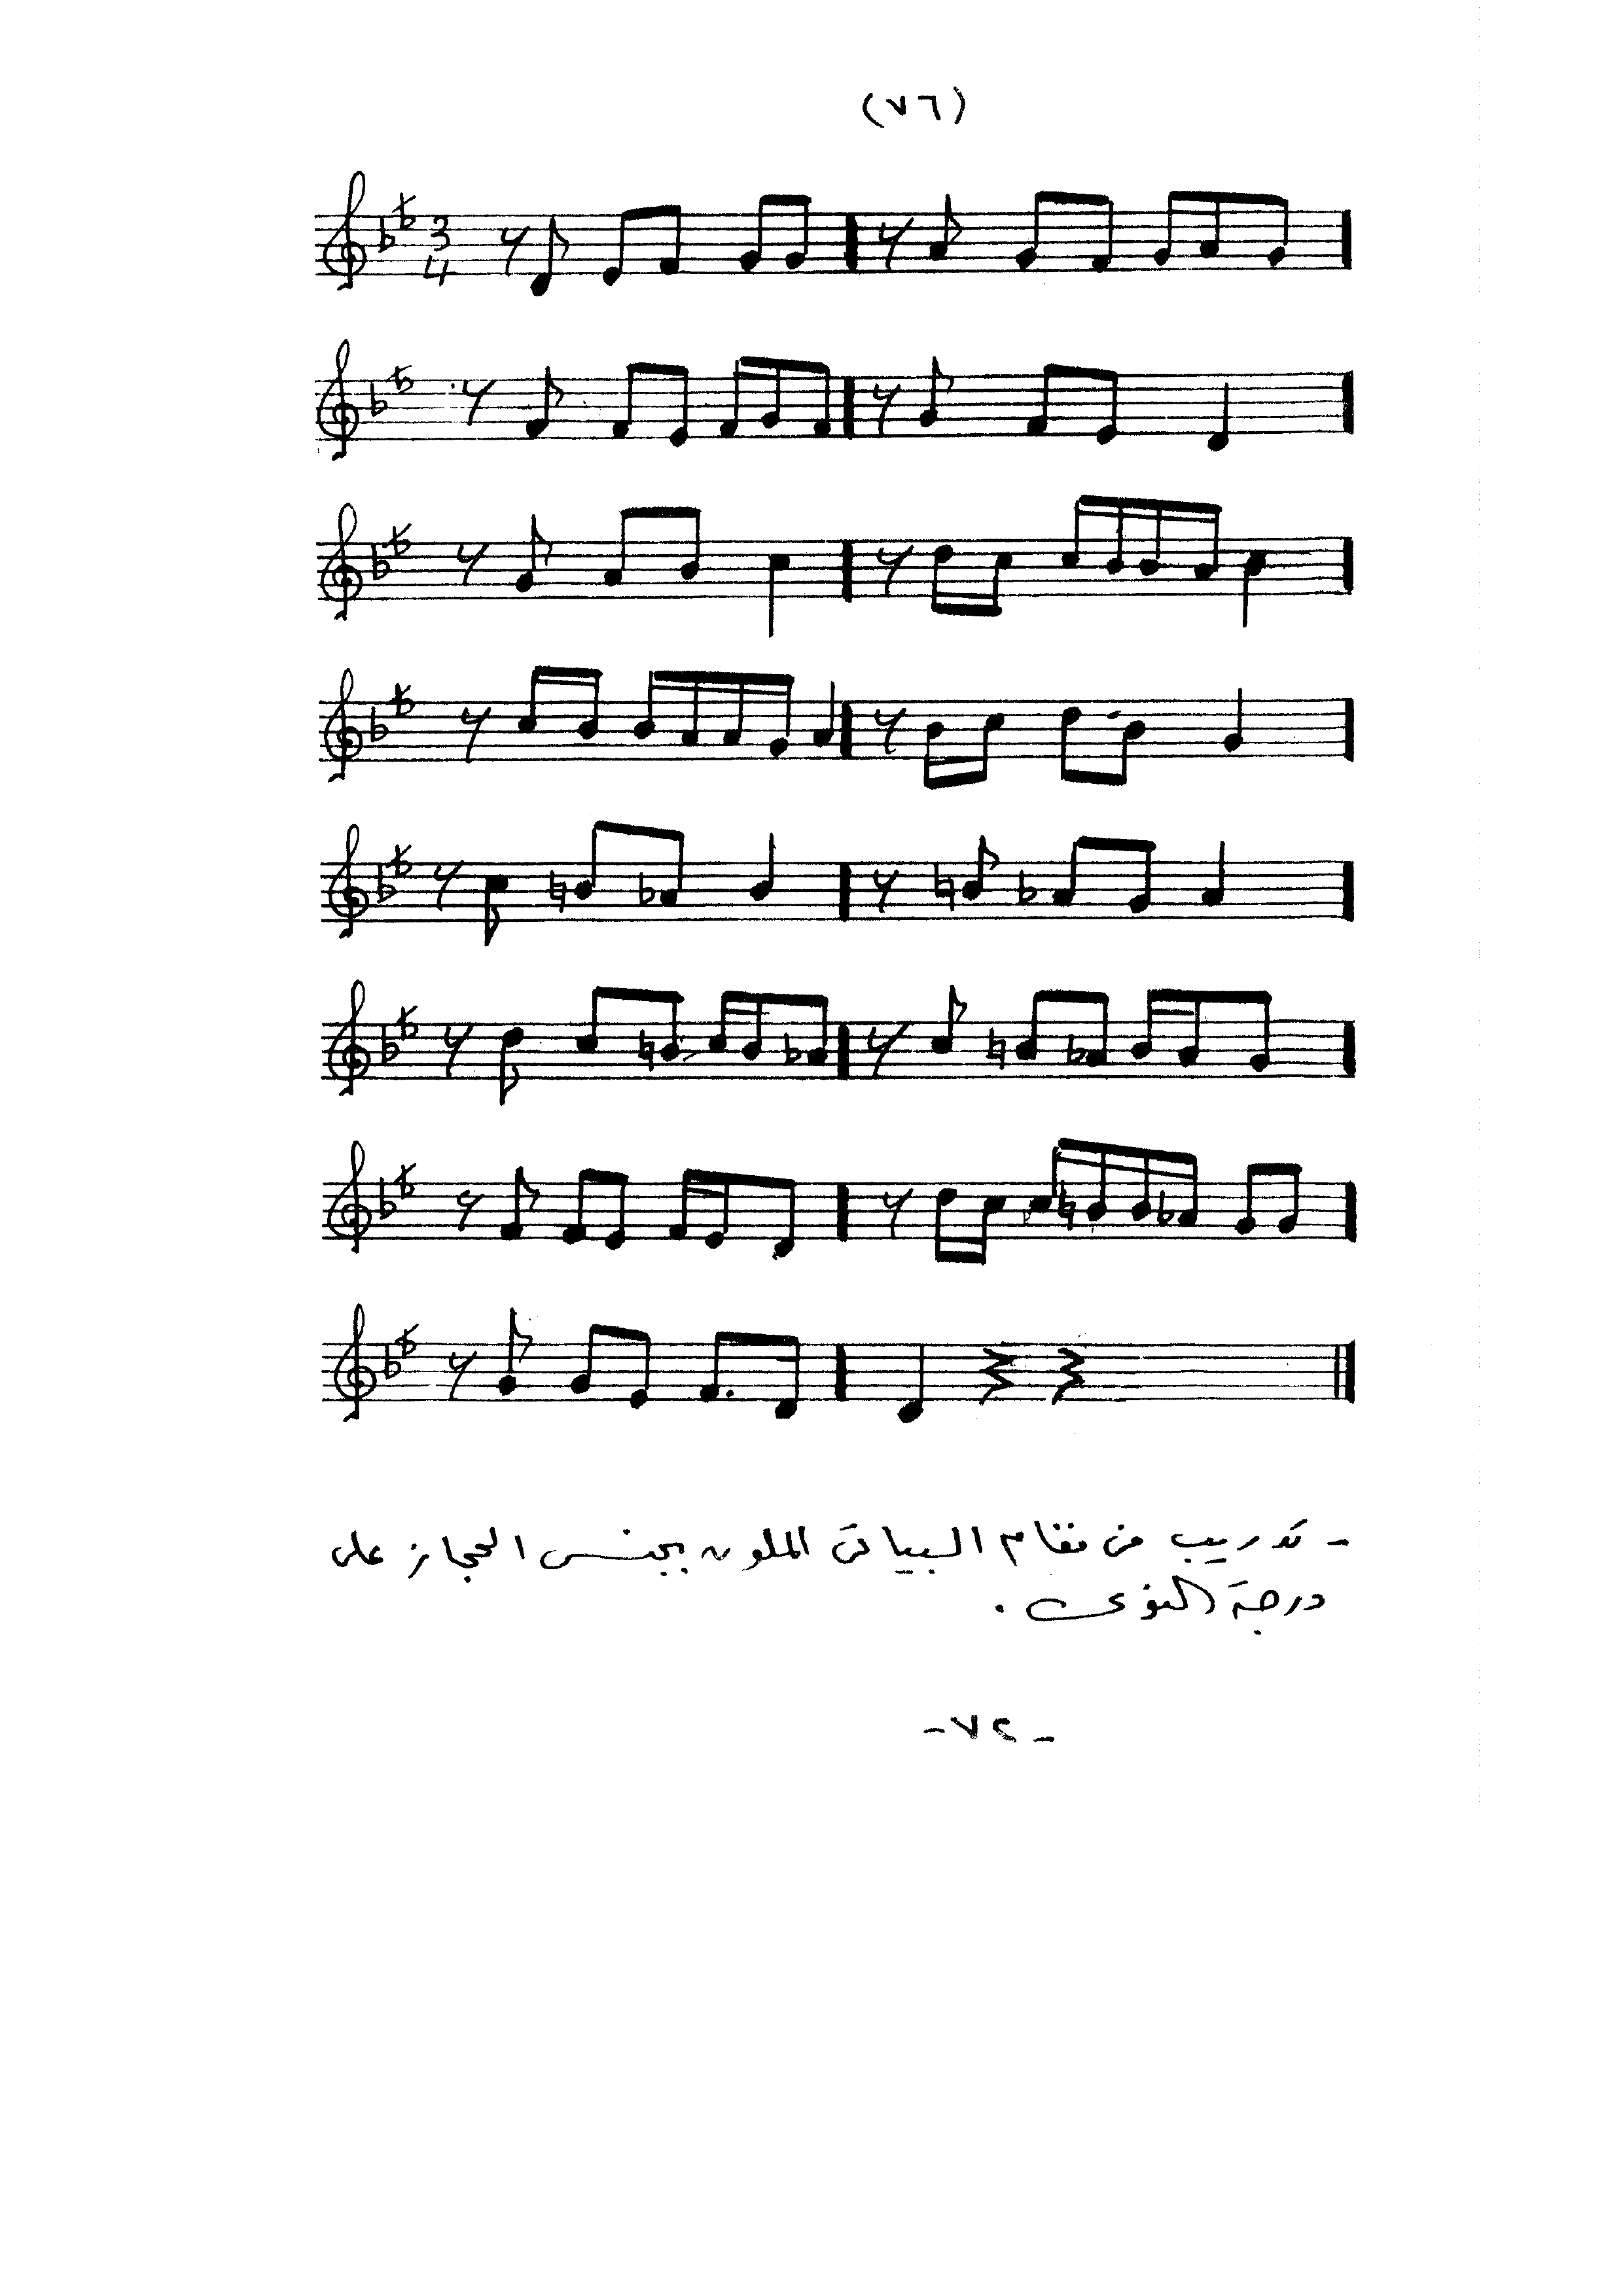 (٧٦)
3
4
- تدريب من مقام البياتى الملون بجنس الحجاز على
درجة النوى .
- ٧٢ -